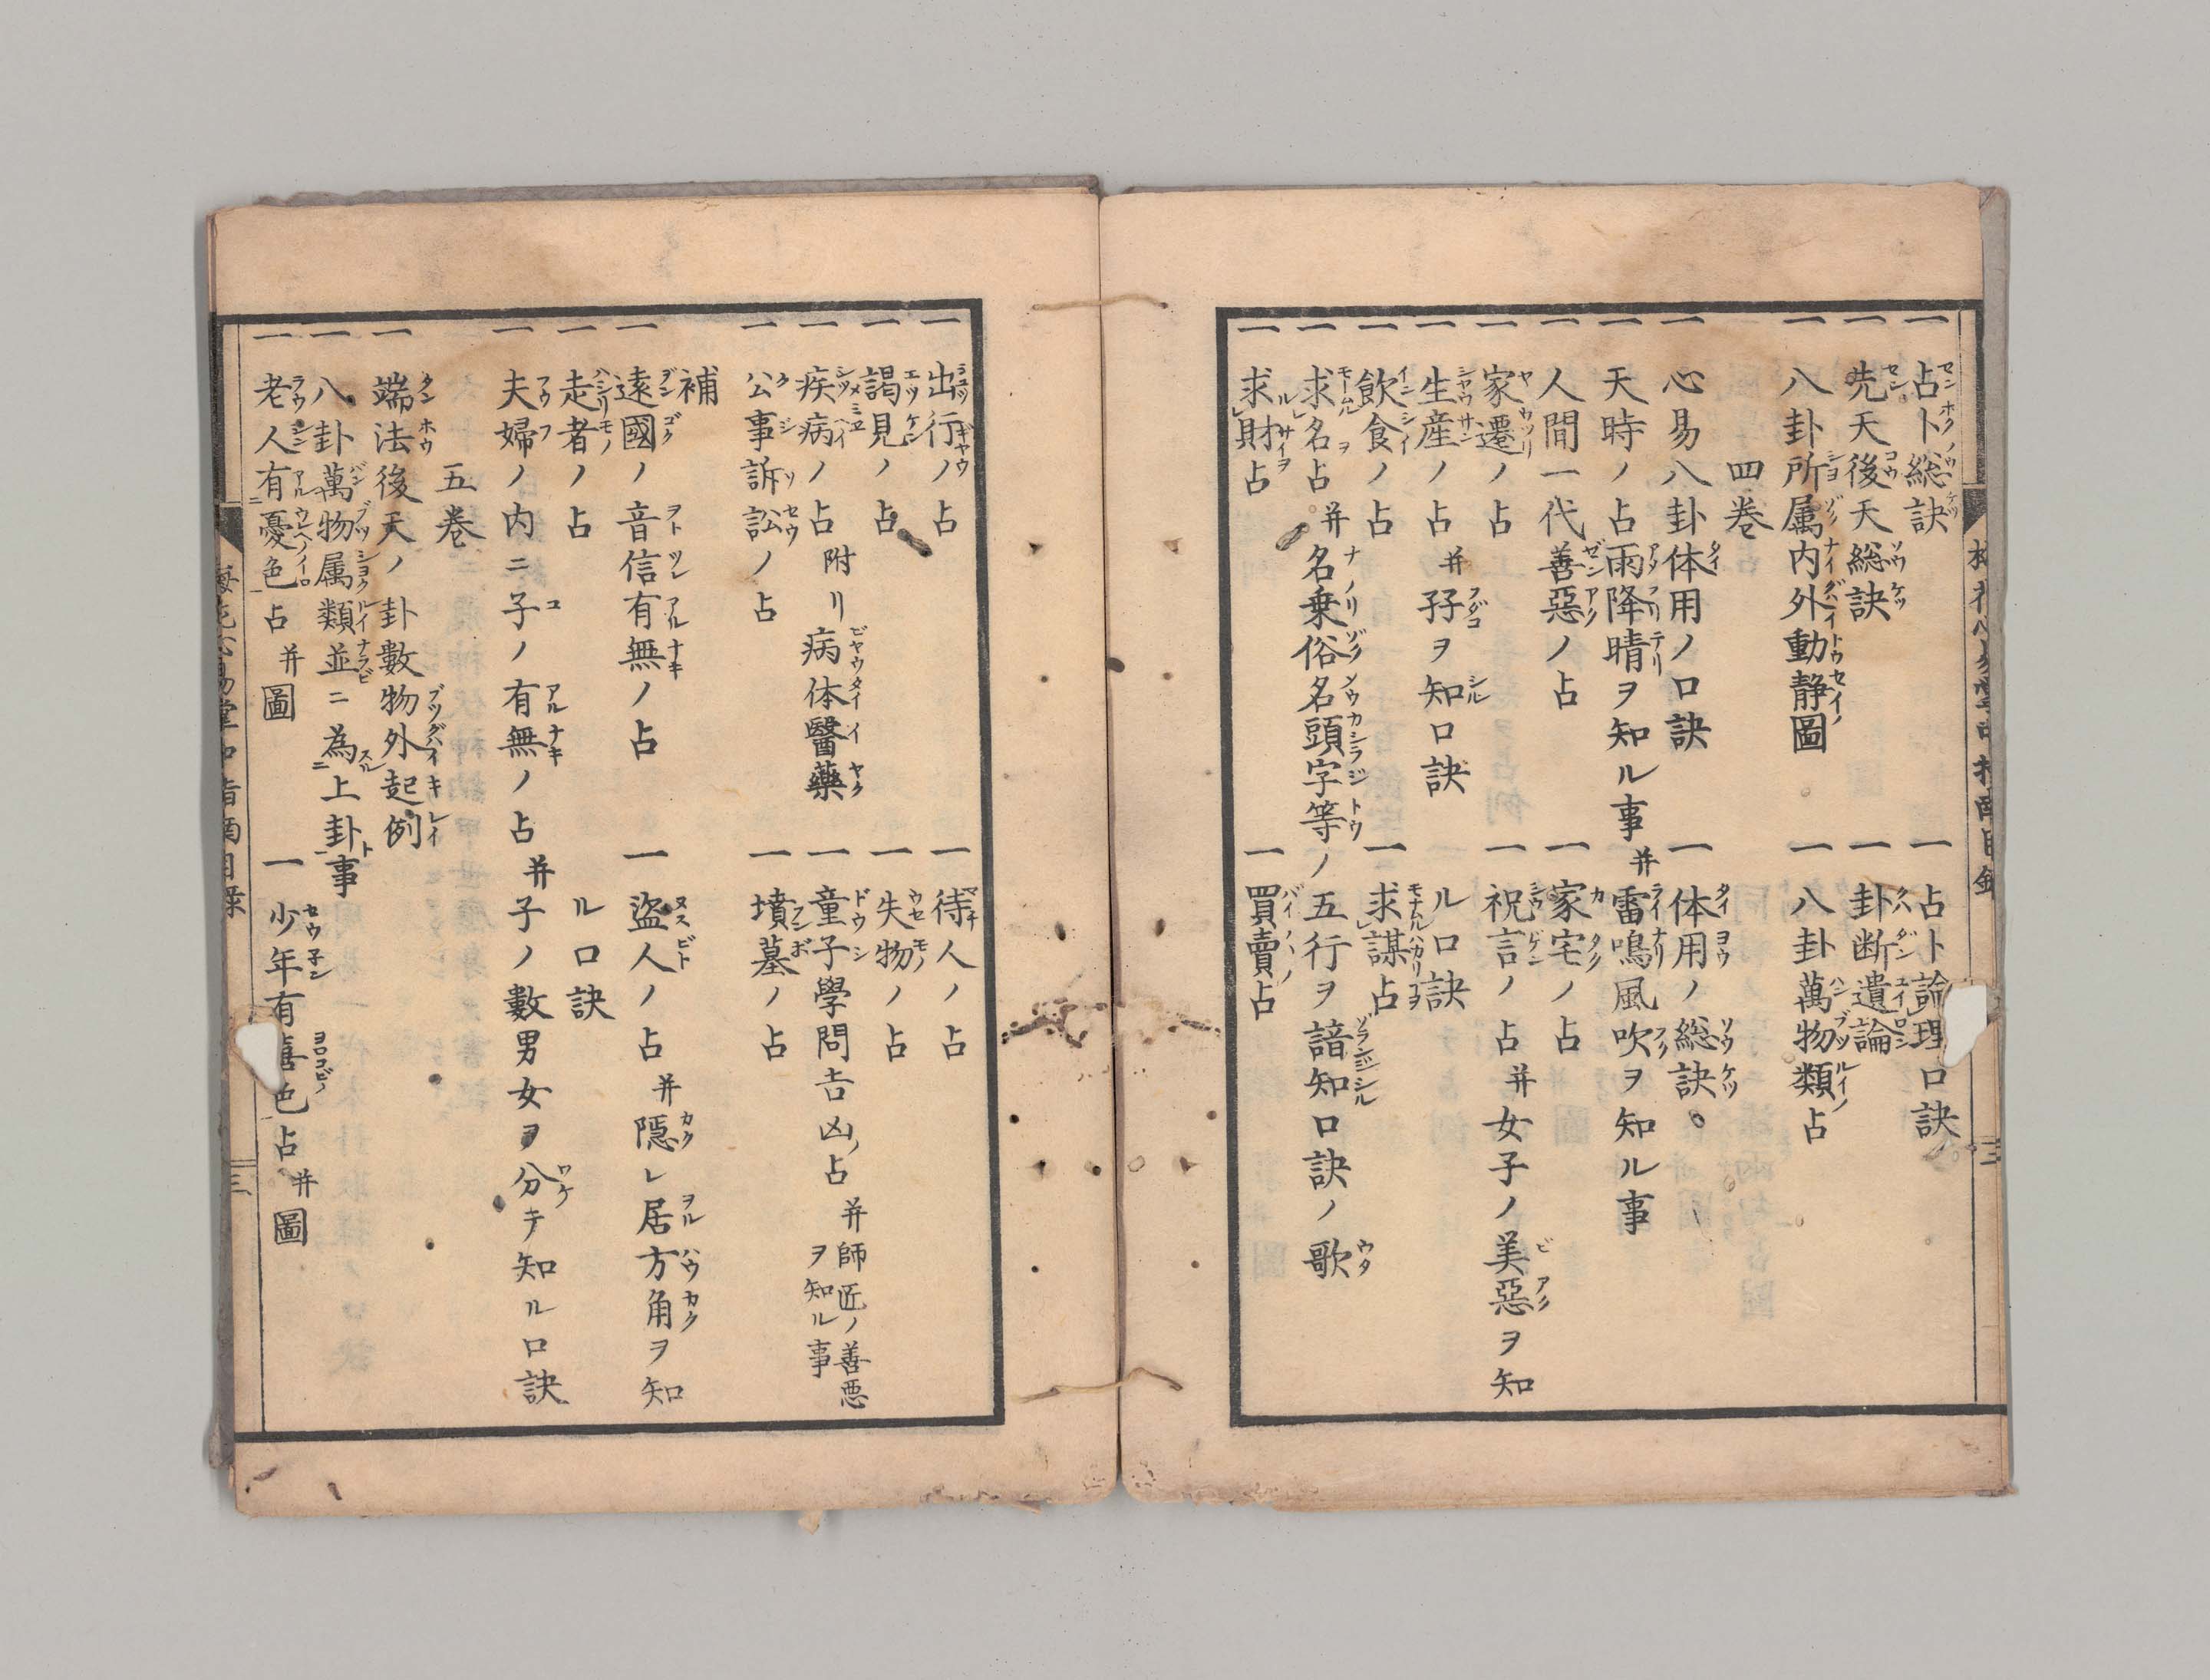 一 占卜総訣 一 占卜論理口訣
一 先天後天総訣 一 卦断遺論
一 八卦所属内外動静圖 一 八卦萬物類占
四巻
一 心易八卦体用ノ口訣 一 体用ノ総訣
一 天時ノ占雨降晴ヲ知ル事并雷鳴風吹ヲ知ル事
一 人間一代善惡ノ占 一 家宅ノ占
一 家遷ノ占 一 祝言ノ占并女子ノ美惡ヲ知
一 生産ノ占并孖ヲ知口訣 ル口訣
一 飲食ノ占 一 求謀占
一 求名占并名乗俗名頭字等ノ五行ヲ諳知口訣ノ歌
一 求財占 一 買賣占
一 出行ノ占 一 待人ノ占
一 謁見ノ占 一 失物ノ占
一 疾病ノ占附リ病体醫藥 一 童子學問吉凶ノ占并師匠ノ善悪ヲ知ル事
一 公事訴訟ノ占 一 墳墓ノ占
補
一 遠國ノ音信有無ノ占 一 盗人ノ占并隠レ居方角ヲ知
一 走者ノ占 ル口訣
一 夫婦ノ内ニ子ノ有無ノ占并子ノ數男女ヲ分テ知ル口訣
五巻
一 端法後天ノ卦數物外起例
一 八卦萬物属類並ニ為上卦事
一 老人有憂色占并圖 一 少年有喜色占并圖
三